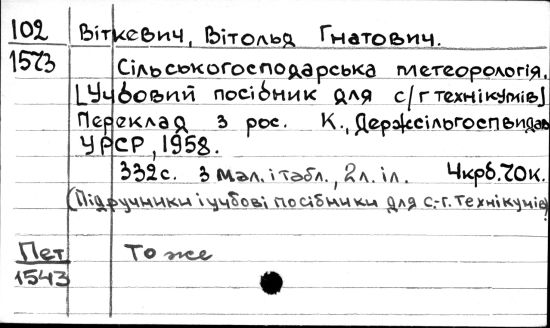 102 Віткевич, Вітольд Гнатович.
1573 Сільськогосподарська метеорологія.
[Учбовий посібник для с/г технікумів]
Переклад з рос. К., Держсільгоспвидав
УРСР, 1958.
332с. з мал. і табл., 2л. іл. 4крб. 70к.
(Підручники і учбові посібники для с.-г. технікумів)
Пет То же
1543